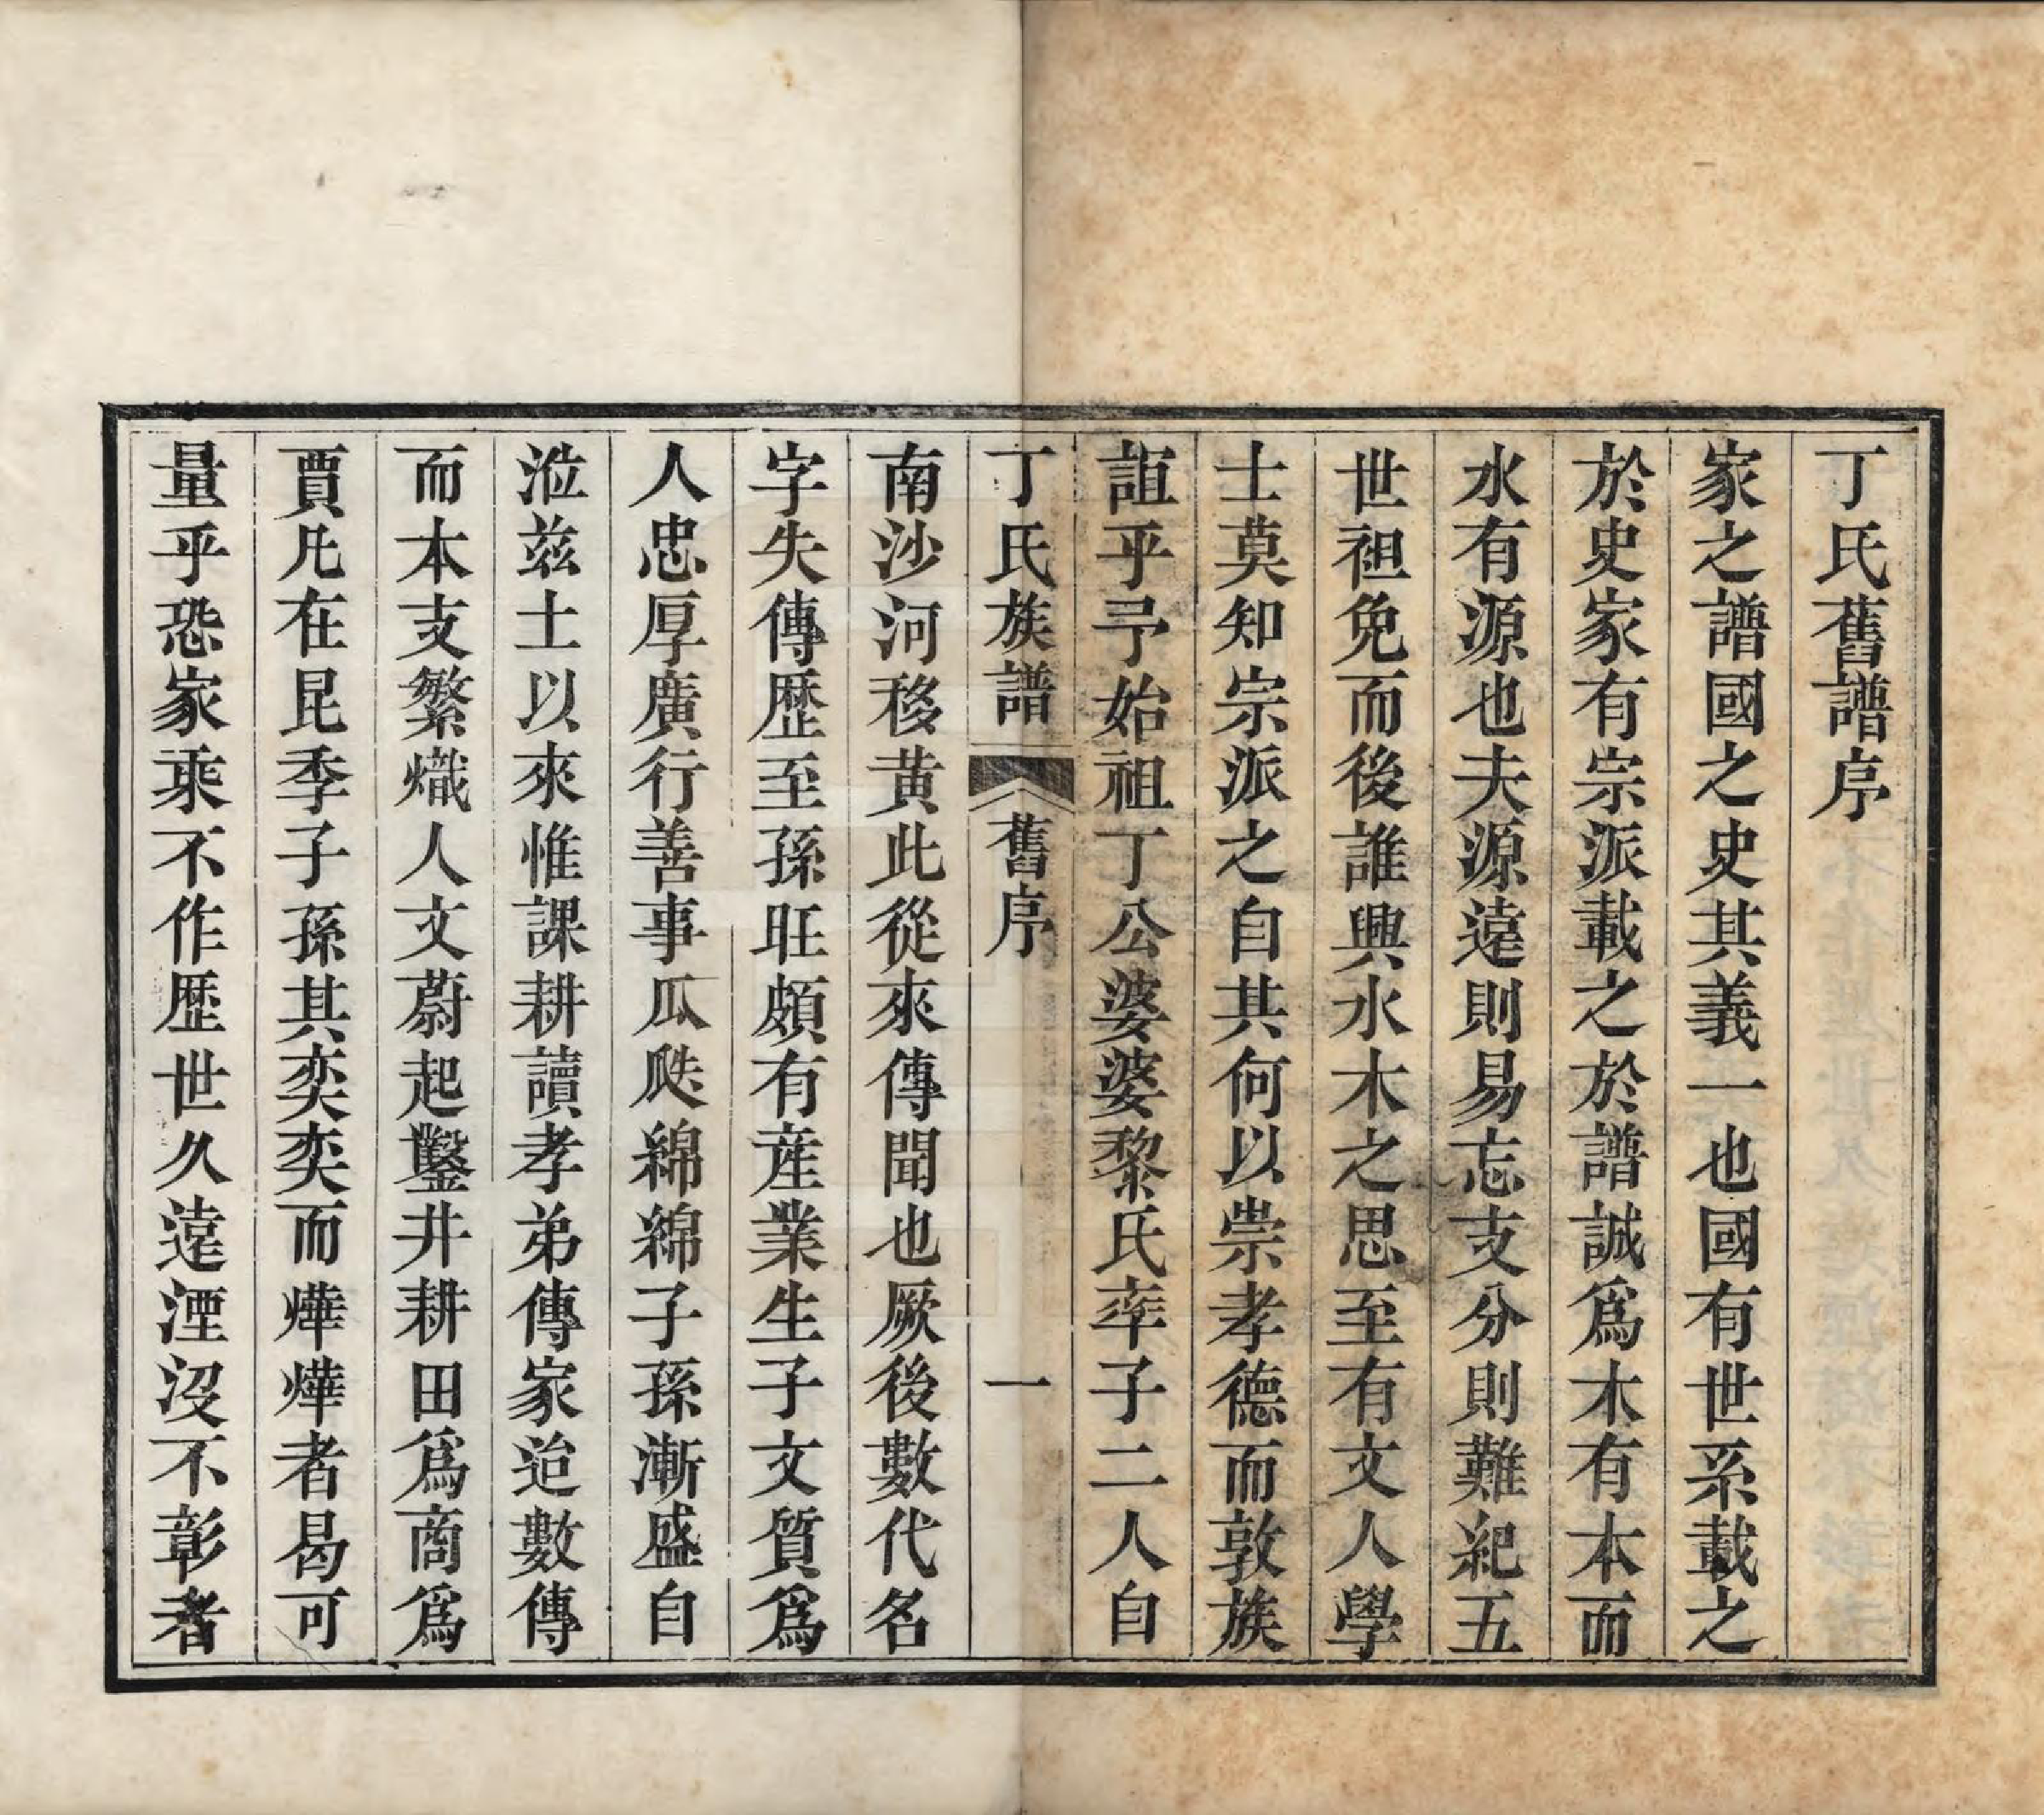 丁氏舊譜序
家之譜國之史其義一也國有世系載之
於史家有宗派載之於譜誠爲木有本而
水有源也夫源遠則易忘支分則難紀五
世袒免而後誰興水木之思至有文人學
士莫知宗派之自其何以崇孝德而敦族
誼乎予始祖丁公婆婆黎氏率子二人自
丁氏族譜 舊序 一
南沙河移黄此從來傳聞也厥後數代名
字失傳歷至孫旺頗有産業生子文質爲
人忠厚廣行善事瓜瓞綿綿子孫漸盛自
涖兹土以來惟課耕讀孝弟傳家迨數傳
而本支繁熾人文蔚起鑿井耕田爲商爲
賈凡在昆季子孫其奕奕而燁燁者曷可
量乎恐家乘不作歷世久遠湮沒不彰者